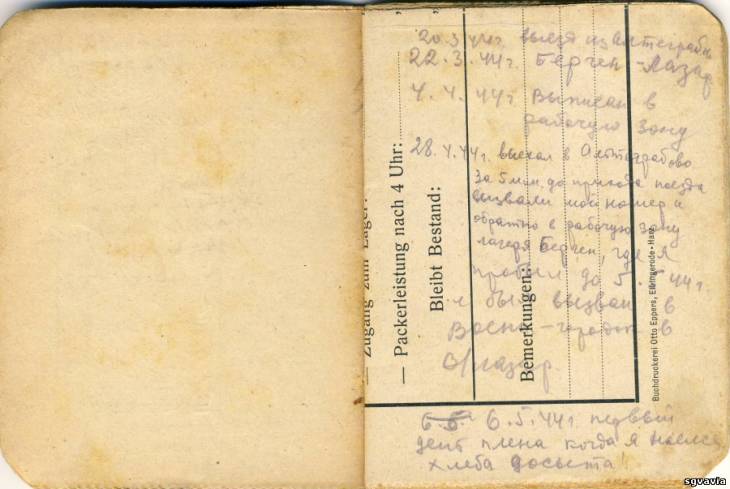 20.3.44г. выезд из Антеграбы
22.3.44г. Берген-Лазар
4.4.44г Выписан в
рабочую зону
28.4.44г. выехал в
За 5 мин. до прихода поезда
вызвали мой номер и
обратно в рабочую зону
лагеря Берген, где я
пробыл до 5.5.44г.
и был вызван в
городок в
6.5. 6.5.44г. первый
день плена когда я наелся
хлеба досыта
— Zugang zum Lager:
— Packerleistung nach 4 Uhr:
Bleibt Bestand:
Bemerkungen:
Buchdruckerei Otto Eppers, Elbingerode-Harz
sgvavia